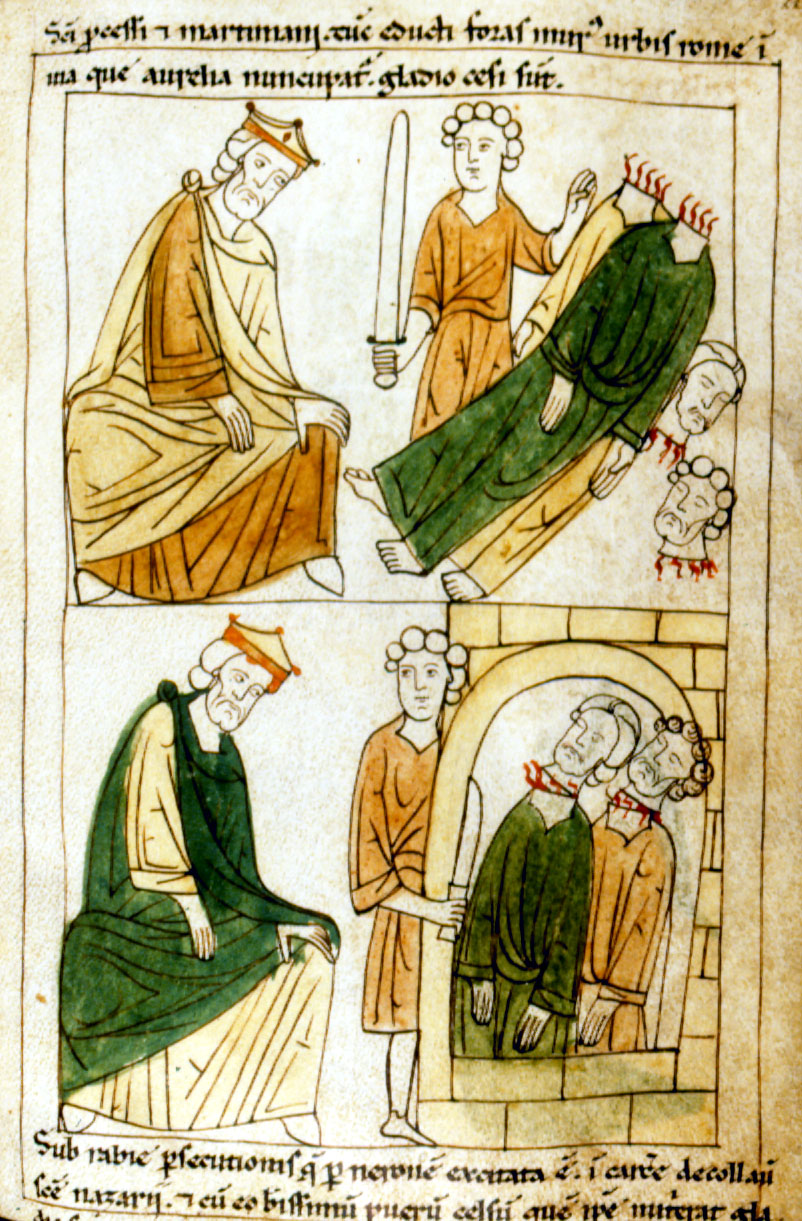 Sci pcessi ⁊ martiniani. cūe educti foras mur᷒ urbis rome ī
uia que aurelia nuncupat᷒. gladio cesi sūt.
Sub rabie psecutionis q̄ p neronē excitata ē. ī carc̄e decollati
scē nazarii. ⁊ cū eo bissimū puerū celsū quē ip̄e nutrierat gla